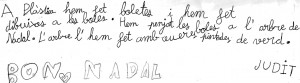 A Plàstica hem fet boletes i hem fet
dibuixos a les boles. Hem penjat les boles a l'arbre de
Nadal. L'arbre l'hem fet amb oueres pintades de verd.
BON NADAL JUDIT